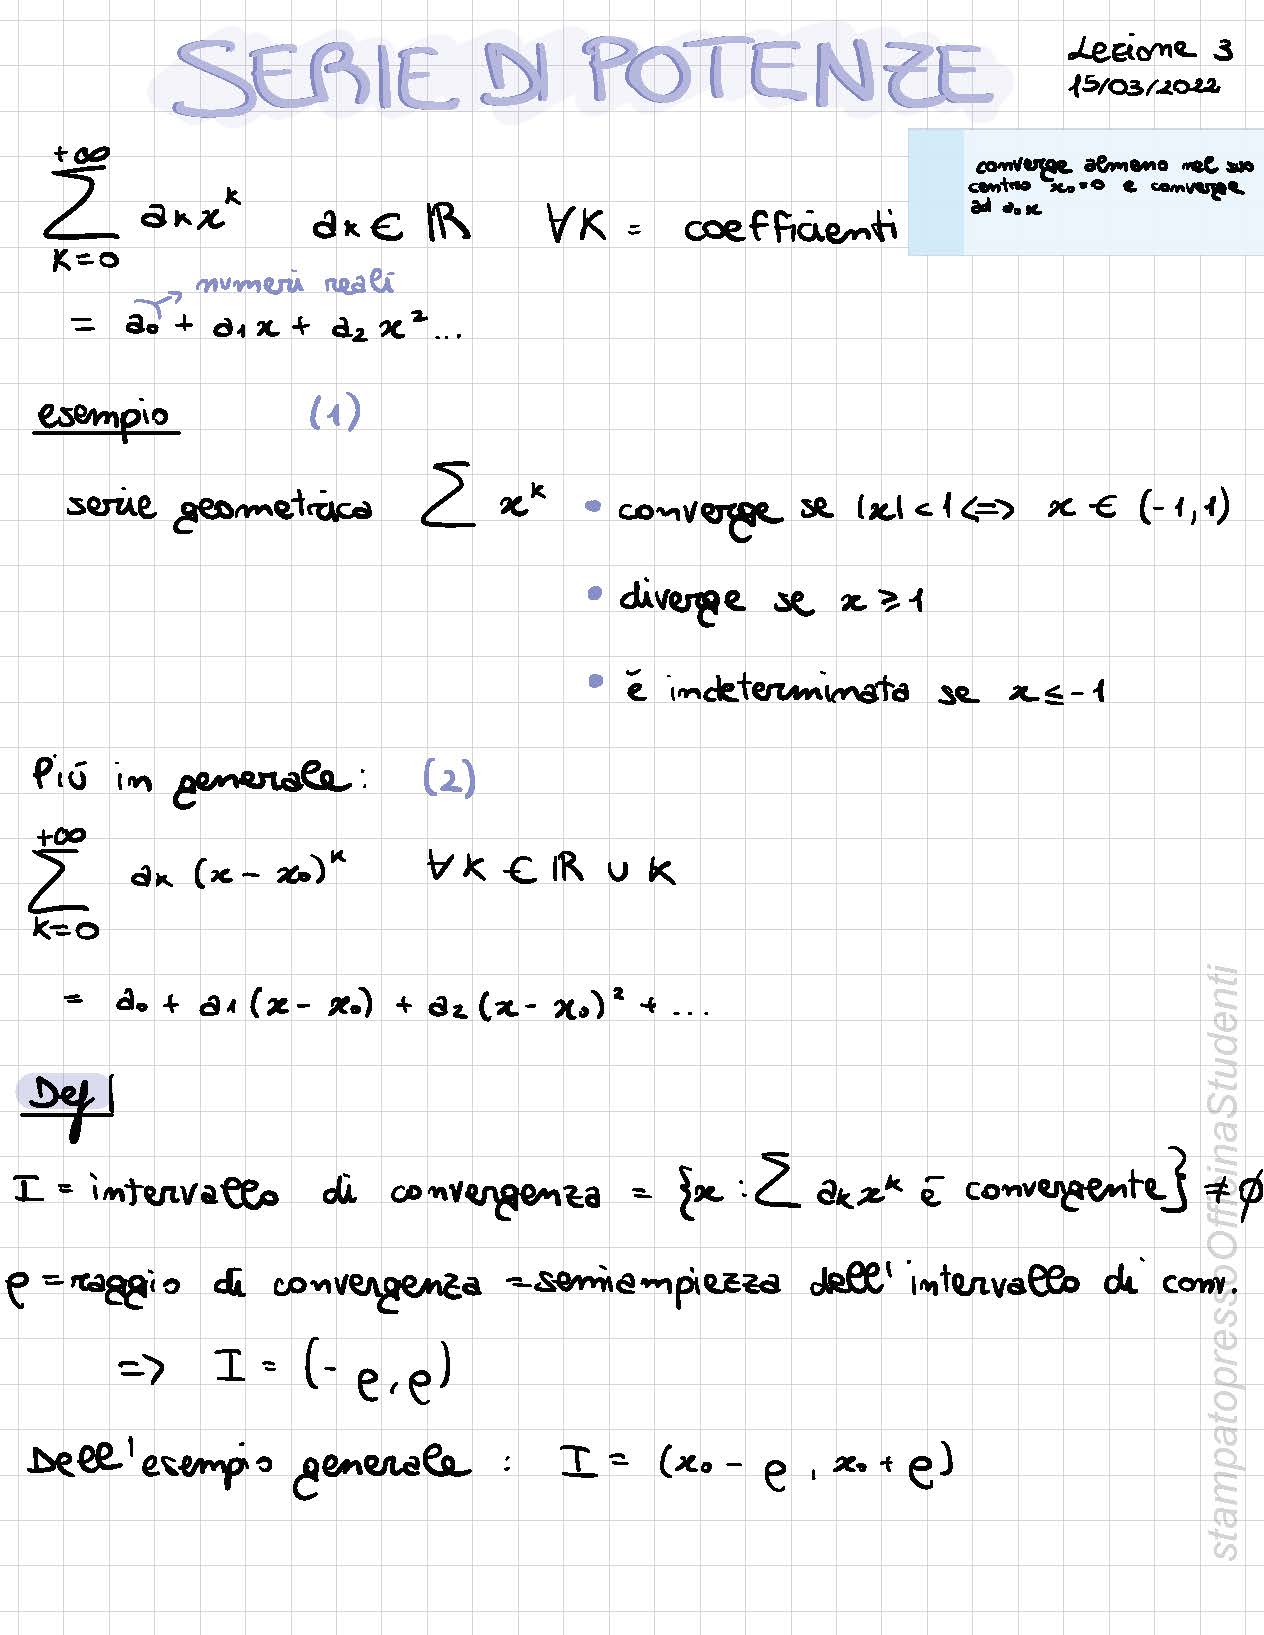 SERIE DI POTENZE
Lezione 3
15/03/2022
converge almeno nel suo
centro x₀=0 e converge
ad a₀x
+∞
∑ aₖxᵏ aₖ ∈ ℝ ∀K = coefficienti
K=0
numeri reali
= a₀ + a₁x + a₂x² ...
esempio (1)
serie geometrica ∑ xᵏ • converge se |x| < 1 <=> x ∈ (-1,1)
• diverge se x ≥ 1
• è indeterminata se x ≤ -1
Più in generale: (2)
+∞
∑ aₖ (x - x₀)ᵏ ∀K ∈ ℝ ∪ K
K=0
= a₀ + a₁(x - x₀) + a₂(x - x₀)² + ...
Def
I = intervallo di convergenza = {x : ∑ aₖxᵏ è convergente} ≠ ∅
ρ = raggio di convergenza = semiampiezza dell'intervallo di conv.
=> I = (-ρ, ρ)
Dell'esempio generale : I = (x₀ - ρ, x₀ + ρ)
stampatopressoOfficinaStudenti